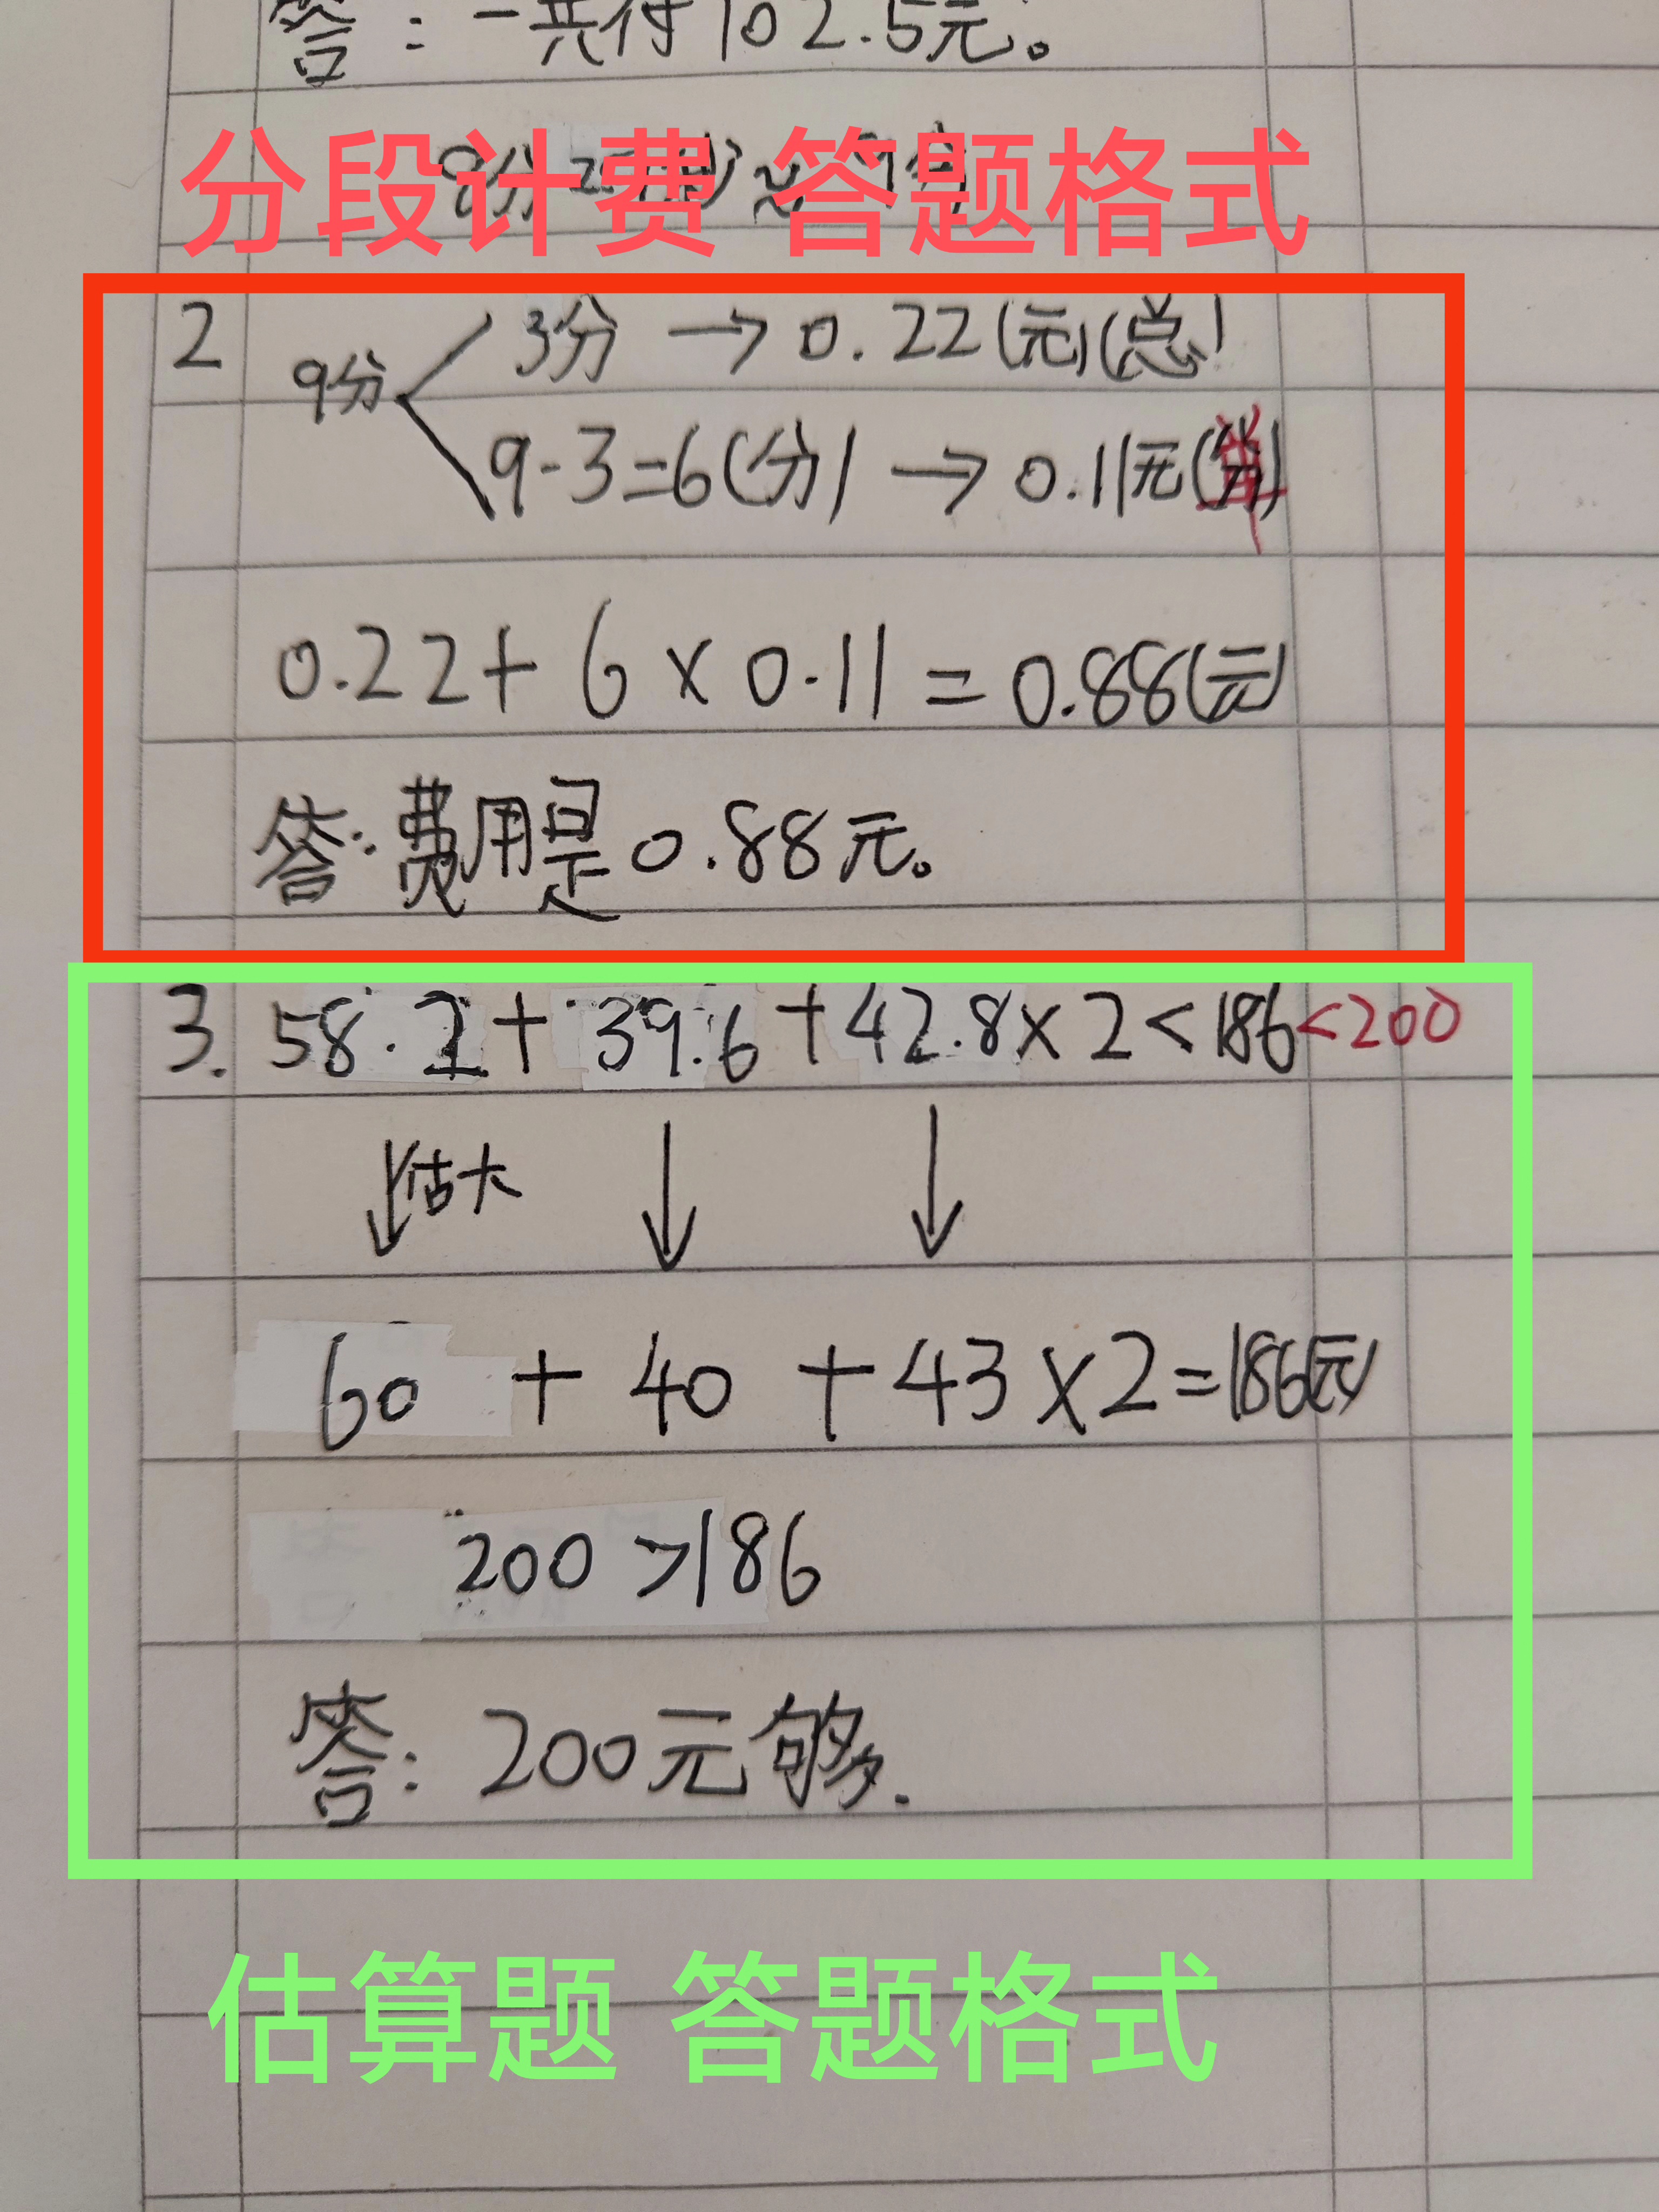 答：一共付102.5元。
分段计费 答题格式
8分 秒≈9分
2 9分 3分 → 0.22(元)(总)
9-3=6(分) → 0.11元(单)
0.22+6×0.11=0.88(元)
答:费用是0.88元。
3. 58.2+39.6+42.8×2<186<200
↓估大 ↓ ↓
60 + 40 + 43×2=186(元)
200>186
答:200元够.
估算题 答题格式